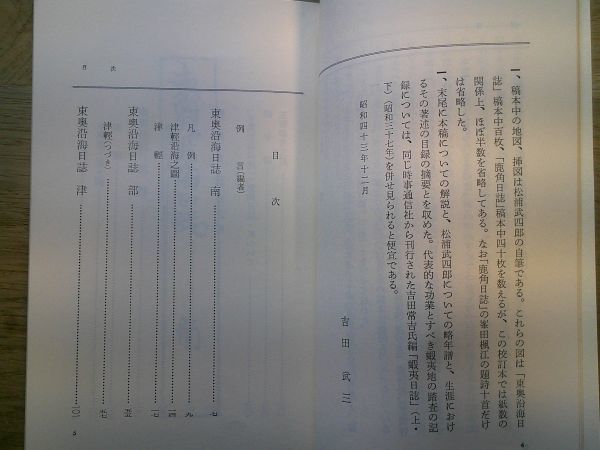 一、稿本中の地図、挿図は松浦武四郎の自筆である。これらの図は「東奥沿海日
誌」稿本中百枚、「鹿角日誌」稿本中四十枚を数えるが、この校訂本では紙数の
関係上、ほぼ半数を省略してある。なお「鹿角日誌」の峯田楓江の題詩十首だけ
は省略した。
一、末尾に本稿についての解説と、松浦武四郎についての略年譜と、生涯におけ
るその著述の目録の摘要とを収めた。代表的な功業とすべき蝦夷地の踏査の記
録については、同じ時事通信社から刊行された吉田常吉氏編「蝦夷日誌」(上・
下)(昭和三十七年)を併せ見られると便宜である。
昭和四十三年十二月
吉田武三
4
目次
目次
例言(編者)
東奥沿海日誌 南……七
凡例……九
津軽沿海之圖……一四
津輕……一七
東奥沿海日誌 部……
津輕(つづき)……
東奥沿海日誌 津……一〇一
5